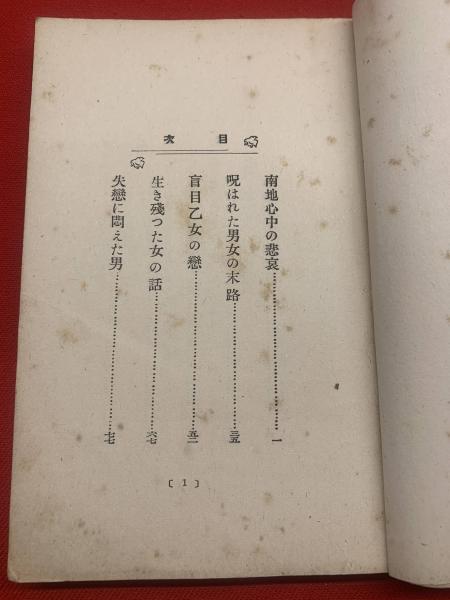 目次
南地心中の悲哀……一
呪はれた男女の末路……三五
盲目乙女の戀……五一
生き殘つた女の話……六七
失戀に悶えた男……七七
〔1〕